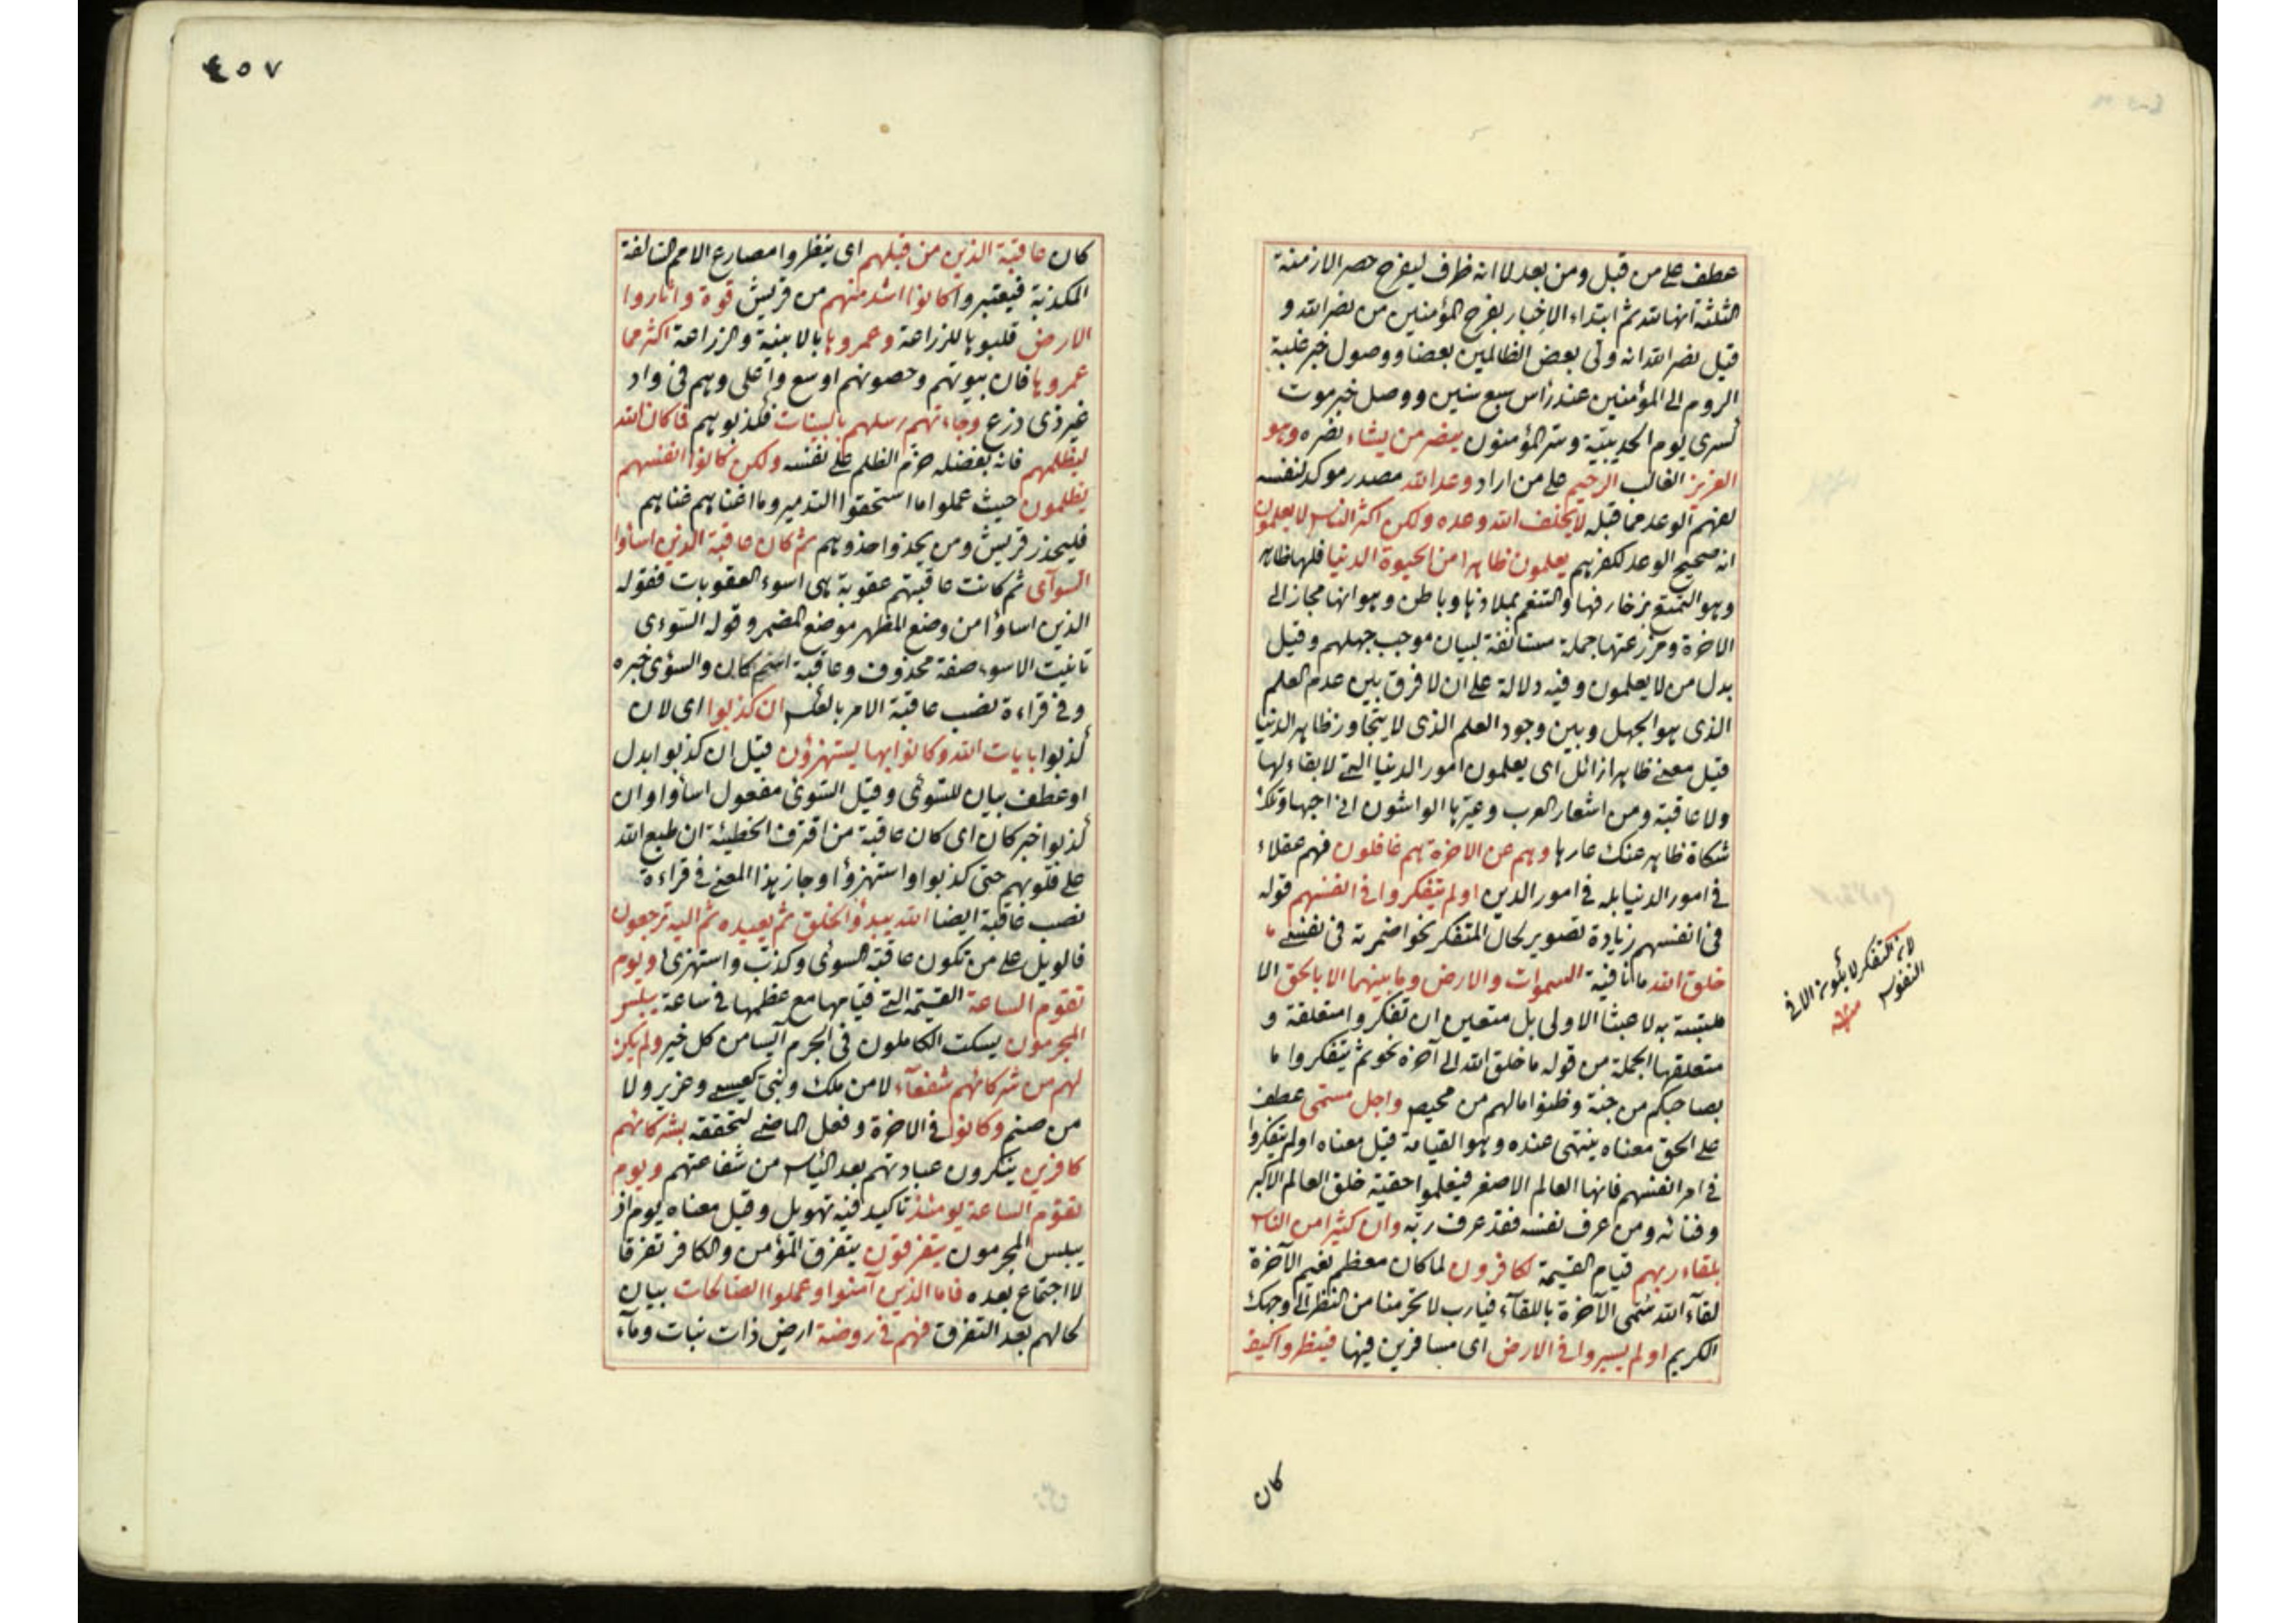 عطف على من قبل ومن بعد لا انه ظرف ليفرح حصر الازمنة
الثلثة انها لله ثم ابتداء الاخبار بفرح المؤمنين من نصر الله و
قيل نصر الله انه ولى بعض الظالمين بعضا ووصول خبر غلبة
الروم الى المؤمنين عند رأس سبع سنين ووصل خبر موت
كسرى يوم الحديبية وسر المؤمنون ينصر من يشاء نصره وهو
العزيز الغالب الرحيم على من اراد وعد الله مصدر موكد لنفسه
لفهم الوعد مما قبله لا يخلف الله وعده ولكن اكثر الناس لا يعلمون
انه صحيح الوعد لكفرهم يعلمون ظاهرا من الحيوة الدنيا فلها ظاهر
وهو التمتع بزخارفها والتنعم بملاذها وباطن وهو انها مجاز الى
الاخرة ومزرعتها جملة مستانفة لبيان موجب جهلهم وقيل
بدل من لا يعلمون وفيه دلالة على ان لا فرق بين عدم العلم
الذى هو الجهل وبين وجود العلم الذى لا يتجاوز ظاهر الدنيا
قيل معنى ظاهرا زائل اى يعلمون امور الدنيا التى لا بقاء لها
ولا عاقبة ومن اشعار العرب وعيرها الواشون انى احبها وتلك
شكاة ظاهر عنك عارها وهم عن الاخرة هم غافلون فهم عقلاء
فى امور الدنيا بله فى امور الدين اولم يتفكروا فى انفسهم قوله
فى انفسهم زيادة تصوير لحال المتفكر نحو اضمرته فى نفسى ما
خلق الله ما نافية السموات والارض وما بينهما الا بالحق الا
ملتبسة به لا عبثا الاولى بل متعين ان تفكروا متعلقة و
متعلقها الجملة من قوله ما خلق الله الى آخره نحو ثم يتفكروا ما
بصاحبكم من جنة وظنوا مالهم من محيص واجل مسمى عطف
على الحق معناه ينتهى عنده وهو القيامة قيل معناه اولم يتفكروا
فى امر انفسهم فانها العالم الاصغر فيعلموا حقية خلق العالم الاكبر
وفنائه ومن عرف نفسه فقد عرف ربه وان كثيرا من الناس
بلقاء ربهم قيام القيمة لكافرون لما كان معظم نعيم الآخرة
لقاء الله سمى الآخرة باللقاء فيارب لا تحرمنا من النظر الى وجهك
الكريم اولم يسيروا فى الارض اى مسافرين فيها فينظروا كيف
كان
لان التفكر لا يكون الا فى
النفوس
منه
٤٥٧
كان عاقبة الذين من قبلهم اى ينظروا مصارع الامم السالفة
المكذبة فيعتبروا كانوا اشد منهم من قريش قوة واثاروا
الارض قلبوها للزراعة وعمروها بالابنية والزراعة اكثر مما
عمروها فان بيوتهم وحصونهم اوسع واعلى وهم فى واد
غير ذى زرع وجاءتهم رسلهم بالبينات فكذبوهم فما كان الله
ليظلمهم فانه بفضله حرم الظلم على نفسه ولكن كانوا انفسهم
يظلمون حيث عملوا ما استحقوا التدمير وما اغناهم غناهم
فليحذر قريش ومن يحذوا حذوهم ثم كان عاقبة الذين اساؤا
السوآى ثم كانت عاقبتهم عقوبة هى اسوء العقوبات فقوله
الذين اساؤا من وضع المظهر موضع المضمر وقوله السوءى
تانيث الاسوء صفة محذوف وعاقبة اسم كان والسوءى خبره
وفى قراءة نصب عاقبة الامر بالعكس ان كذبوا اى لان
كذبوا بايات الله وكانوا بها يستهزؤن قيل ان كذبوا بدل
او عطف بيان للسوءى وقيل السوءى مفعول اساؤا وان
كذبوا خبر كان اى كان عاقبة من اقترف الخطيئة ان طبع الله
على قلوبهم حتى كذبوا واستهزؤا وجاز هذا المعنى فى قراءة
نصب عاقبة ايضا الله يبدؤ الخلق ثم يعيده ثم اليه ترجعون
فالويل على من تكون عاقبة السوءى وكذب واستهزئ ويوم
تقوم الساعة القيمة التى قيامها مع عظمها فى ساعة يبلس
المجرمون يسكت الكاملون فى الجرم آئيسا من كل خير ولم يكن
لهم من شركائهم شفعآء لا من ملك ونبى كعيسى وعزير ولا
من صنم وكانوا فى الاخرة وفعل الماضى لتحققه بشركائهم
كافرين ينكرون عبادتهم بعد الياس من شفاعتهم ويوم
تقوم الساعة يومئذ تاكيد فيه تهويل وقيل معناه يوم اذ
يبلس المجرمون يتفرقون يتفرق المؤمن والكافر تفرقا
لا اجتماع بعده فاما الذين آمنوا وعملوا الصالحات بيان
لحالهم بعد التفرق فهم فى روضة ارض ذات نبات وماء